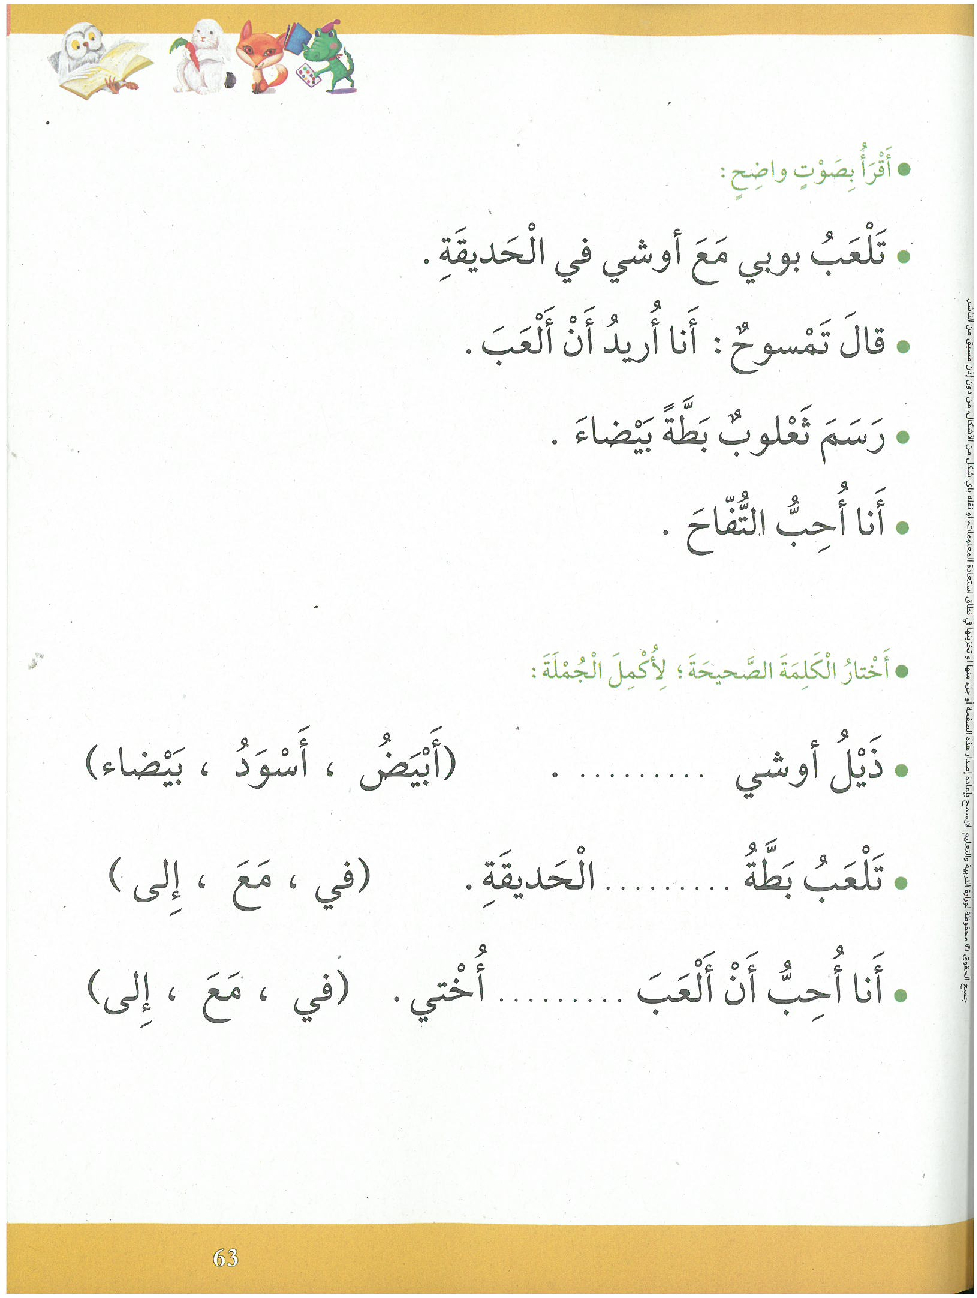 • أَقْرَأُ بِصَوْتٍ واضِحٍ :
• تَلْعَبُ بوبي مَعَ أوشي في الْحَديقَةِ .
• قالَ تَمْسوحٌ : أَنا أُريدُ أَنْ أَلْعَبَ .
• رَسَمَ ثَعْلوبٌ بَطَّةً بَيْضاءَ .
• أَنا أُحِبُّ التُّفّاحَ .
• أَخْتارُ الْكَلِمَةَ الصَّحيحَةَ ؛ لِأُكْمِلَ الْجُمْلَةَ :
• ذَيْلُ أوشي ......... . (أَبْيَضُ ، أَسْوَدُ ، بَيْضاء)
• تَلْعَبُ بَطَّةُ ......... الْحَديقَةِ . (في ، مَعَ ، إِلى )
• أَنا أُحِبُّ أَنْ أَلْعَبَ ......... أُخْتي . (في ، مَعَ ، إِلى)
63